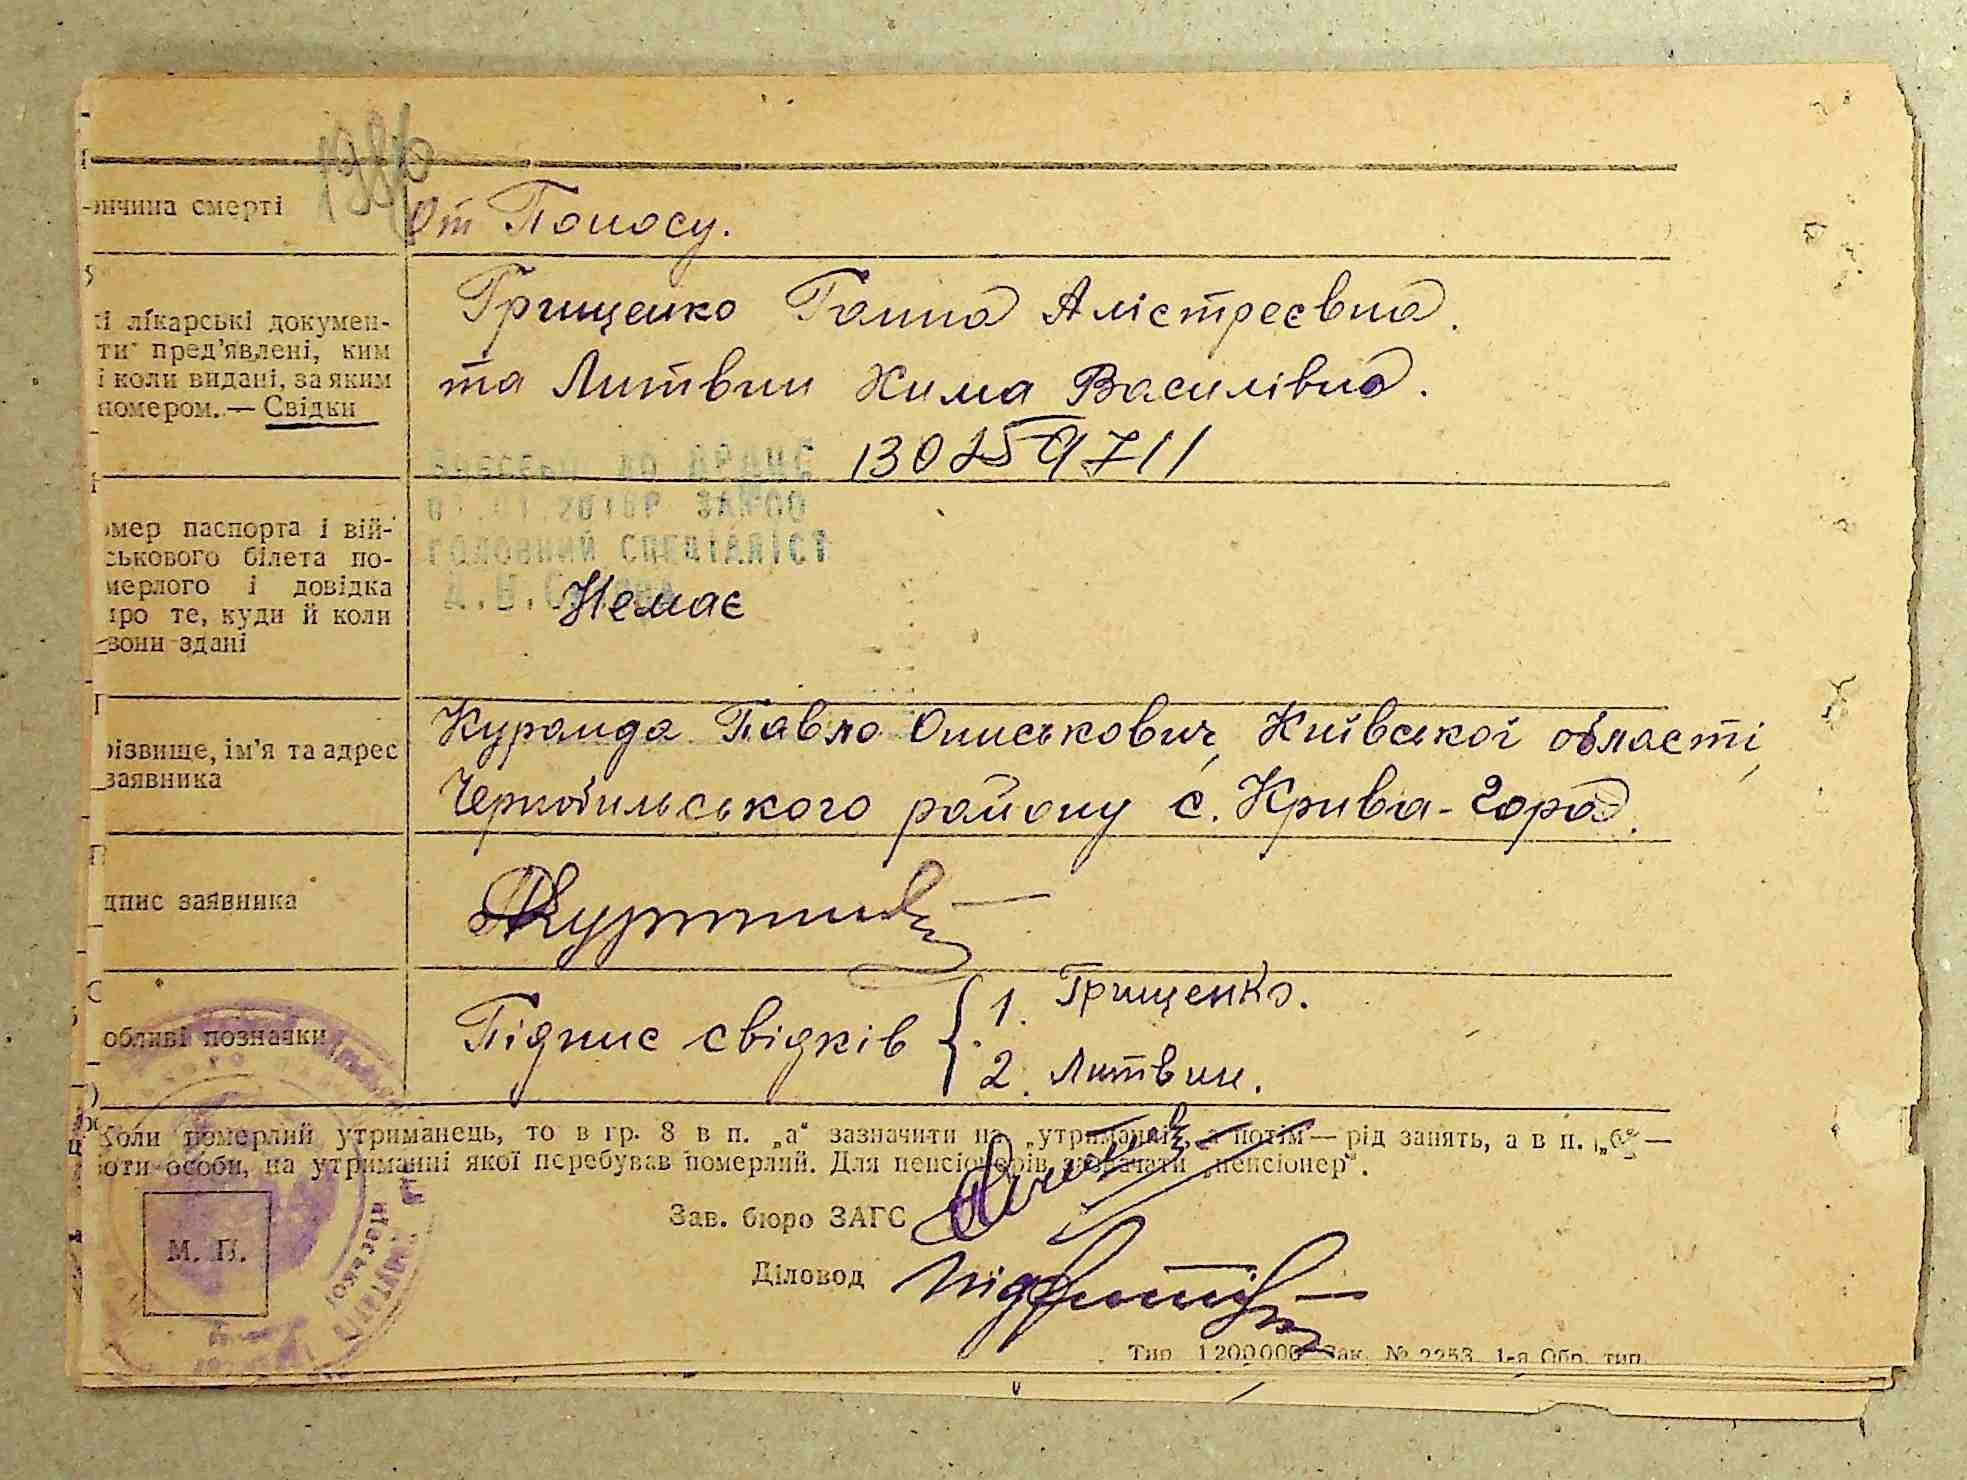 1986
-ичина смерті
От Поносу.
і лікарські докумен-
ти пред'явлені, ким
і коли видані, за яким
номером.— Свідки
Грищенко Ганна Алістреєвна.
та Литвин Хима Василівна.
130259711
ЗАГС
ГОЛОВНИЙ СПЕЦІАЛІСТ
омер паспорта і вій-
ського білета по-
мерлого і довідка
про те, куди й коли
вони здані
Немає
різвище, ім'я та адрес
заявника
Куранда ПавлоОниськович, Київської області,
Чернобильського району с. Крива-Гора.
дпис заявника
обливі позначки
Підпис свідків { 1. Грищенко.
2. Литвин.
Коли померлий утриманець, то в гр. 8 в п. „а“ зазначити на „утриманні“, а потім — рід занять, а в п. „б“ —
оти особи, на утриманні якої перебував померлий. Для пенсіонерів зазначати „пенсіонер“.
М. П.
Зав. бюро ЗАГС
Діловод
Тип. 1200000 Зак. № 2253. 1-а Обр. тип.